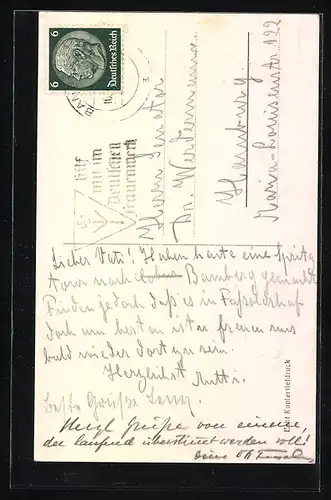 6 Deutsches Reich 6
BAM
16.
hilf
mit im
Deutschen
Frauenwerk
Herrn Senator
Dr.
Hamburg
Maria-Louisenstr 122
Lieber Vati! Haben heute eine Spritz
tour nach Bamberg gemacht.
Finden jedoch daß es in
doch am besten ist u. freuen uns
bald wieder dort zu sein.
Herzlichst Mutti.
Beste Grüsse
Grüße von einem,
der laufend überstimmt werden soll!
Dein
Echt Kupfertiefdruck